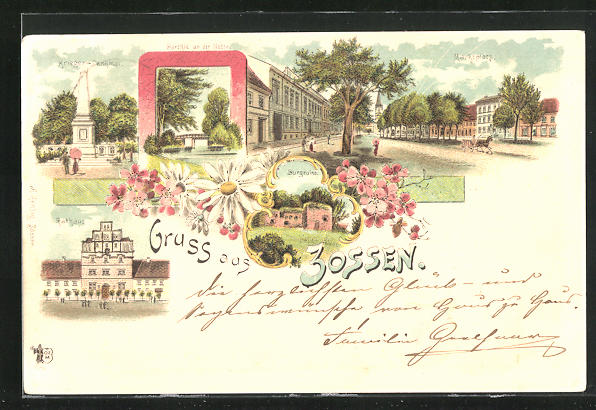 Krieger-Denkmal
Parthie an der Notte
Marktplatz
Burgruine
Rathaus
Gruss aus
ZOSSEN.
die herzlichsten Glück- und
Segenswünsche von Haus zu Haus.
Familie